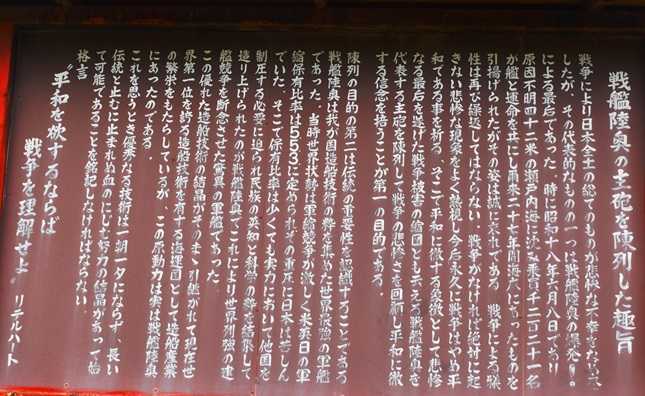 戦艦陸奥の主砲を陳列した趣旨
戦争により日本全土の総てのものが悲惨な不幸をなめま
したが、その代表的なものの一つは戦艦陸奥の爆発に
よる最后であった。時に昭和十八年六月八日であり
原因不明四十二米の瀬戸内海に沈み乗員千二百二十一名
が艦と運命を共にし爾来二十七年間海底にあったものを
引揚げられたがその姿は誠に哀れである 戦争による犠
牲は再び繰返してはならない。戦争がなければ絶対に起
きない悲惨な現実をよく熟視し今后永久に戦争はやめ平
和である事を祈る。そこで平和に徹する象徴として悲惨
なる最后を遂げた戦争被害の縮図とも云える戦艦陸奥を
代表する主砲を陳列して戦争の悲惨さを回顧し平和に徹
する信念を培うことが第一の目的である。
陳列の目的の第二は伝統の重要性を認識することである
戦艦陸奥は我が国造船技術の粋を集めた世界最強の軍艦
であった。当時世界状勢は軍縮競争が激しく米英日の軍
縮保有比率は5.5.3に定められその重圧に日本は苦しん
でいた。そこで保有比率は少くても実力において他国を
制圧する必要に迫られ民族の英知と科学の粋を結集して
造り上げられたのが戦艦陸奥でこれにより世界列強の建
艦競争を断念させた驚異の軍艦であった。
この優れた造船技術の結晶がそのまゝ引継がれて現在世
界第一位を誇る造船技術を有する海運国として造船産業
の繁栄をもたらしているが、この原動力は実は戦艦陸奥
にあったのである。
これを思うとき優秀なる技術は一朝一夕にならず、長い
伝統と止むに止まれぬ血のにじむ努力の結晶があって始
めて可能であることを銘記しなければならない
格言
"平和を欲するならば
戦争を理解せよ"
リデルハート